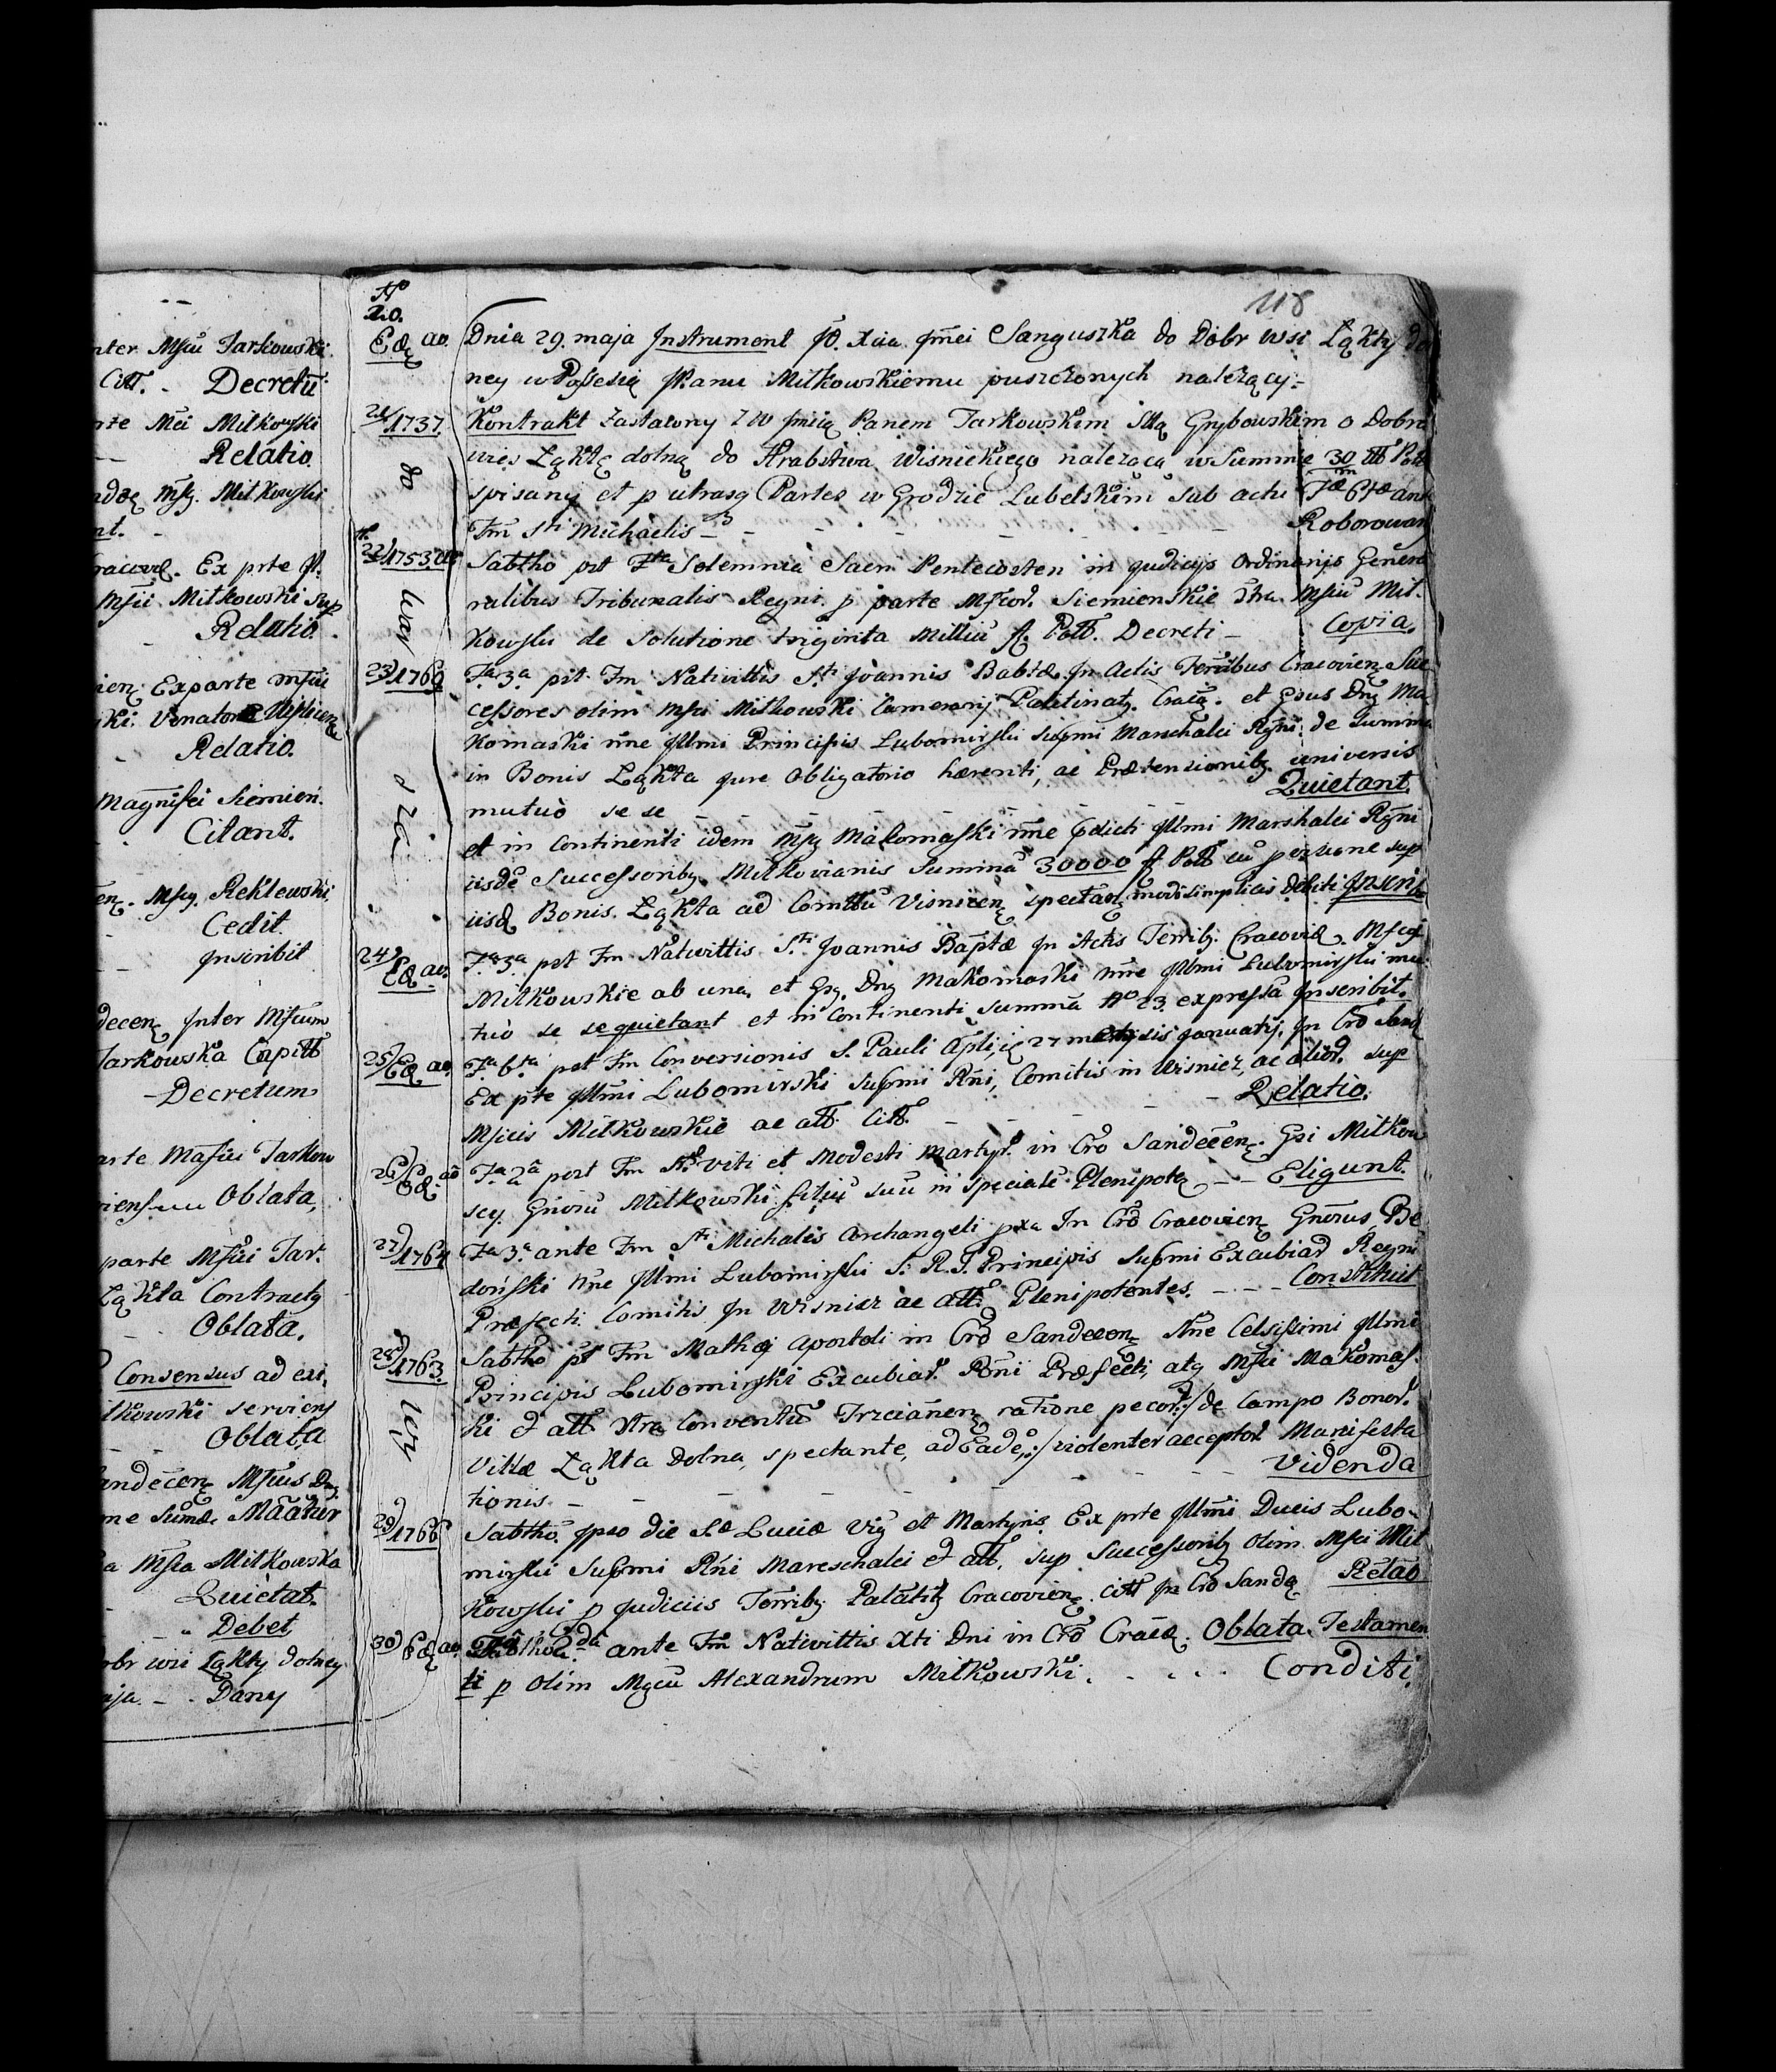 nter Mscū Tarłowski
Citt. - Decretū
rte Mci Miłkowski
Relatio.
Miłkowski
nt. -
Ex prte
Mscii Miłkowski sup
Relatio.
Ex parte mscii
ski Venatoræ Vislicen
Relatio.
Magnifci Siemień.
Citant.
Rekłewski
Cedit.
Inscribit
decen Inter Mscum
Tarkowska Capitt
- Decretum
arte Mascii Tarkow
Oblata,
parte Mscii Tar.
Łąkta Contracty
Oblata.
Consensus ad exi,
iłkowski serviens
Oblata
andēcen Mscius
me Sum̄æ. Māātur
a Mscia Miłkowska
Quietat.
- Debet
obr wsi Łąkty dolney
aja. - . Dany
118
No
20. Eđ ao. Dnia 29. maja Instrument Jō. Xcia Jm̄ci Sanguszka do Dobr wsi Łąkty do
ney w Possesią JPanu Miłkowskiemu puszczonych należący.
21/1737. Kontrakt zastawny z W Jmcią Panem Tarkowskim Sttą Grybowskim o Dobra
wies Łąktę dolną do Hrabstwa Wisnickiego należącą w Summie 30 m Pol
do spisany et p utrasq Partes w Grodzie Lubelskim sub actu Fæ 6tæ ante
Fm Sti Michaelis - - - Roborowan
22/1753. Sabtho pst Fta Solemnia Sacra Pentecosten in judicijs Ordinarijs Gene
ralibus Tribunalis Regni p parte Mscor. Siemienskie ctra Msciū Mił-
War kowski de solutione triginta Milliū fl. Poll. Decreti - Copia.
23)1760 Fa 3a pst Fm Nativittis Sti Joannis Babtæ In Actis Terribus Cracovien Suc
cessores olim Msci Miłkowski Camerarij Palatinat. Crac. et Gsus Dns Ma
komaski nne Jllmi Principis Lubomirski Suprmi Marschalci Rgni de Summa
in Bonis Łąkta jure Obligatorio hærenti, ac Prætensionib universis
mutuò se se - - - Quietant.
et in Continenti idem Msc Makomaski nne pdicti Jllmi Marshalci Rgni
iisdē Successorib Miłkovianis Summā 30000 fl Poll cū pszione sup
iisd Bonis Łąkta ad Comttū Visnicen spectan modi simplicis debiti Inscri
24) Eđ ao. Fa 3a pst Fm Nativittis Sti Joannis Baptæ In Actis Terrib. Cracoviæ. Mscij
Miłkowskie ab una, et Gs. Dns Makomaski nne Jllmi Lubomirski mu-
tuò se se quietant et in Continenti summā No 23 expressā Inscribit.
25/Eđ ao. Fa 6ta pst Fm Conversionis S. Pauli Apli, 27 mensis Januarij. In Crō Sand
Ex pte Jllmi Lubomirski Supmi Rni, Comitis in Wisnicz, ac alior. sup
Msciis Miłkowskie ac all. Citt. - - - Relatio.
26) Eđ ao Fa 2a post Fm Sti Viti et Modesti Martyr. in Crō Sandecen. Gsi Miłkow
scy Gnorū Miłkowski filiū suū in speciale Plenipot - - Eligunt.
27)1764 Fa 3a ante Fm Sti Michalis Archangeli pxa In Crō Cracovien Gnorus Be
doński nne Jllmi Lubomirski S. R. J. Principis Supmi Excubiar Regni
Præfecti Comitis In Wisnicz ac all. Plenipotentes. - - - Constituit
28)1763. Sabtho pt Fm Mathæi Apostoli in Crō Sandecen Nne Celsissimi Jllmi
Principis Lubomirski Excubiar. Rni Præfecti, atq Msci Makomas-
ki et all ctra Conventū Trzcianen ratione pecor: /de Campo Bonor.
Villæ Łąkta Dolna, spectante, ad Eade,:/ violenter acceptor Manifesta
tionis - - - - - Videnda
29)1766 Sabtho. Ipso die Sæ Luciæ Vig et Martyris. Ex prte Jllmi Ducis Lubo-
mirski Supmi Rni Mareschalci et all, sup Successorib olim Msci Mił
kowski p Judiciis Terrib Palatit Cracovien citt In Crō Sand Relāo
30) Eđ ao. Fa 2da ante Fm Nativittis Xti Dni in Crō Crac. Oblata Testamen
ti p olim Mgcū Alexandrum Miłkowski. - . . . . Conditi.